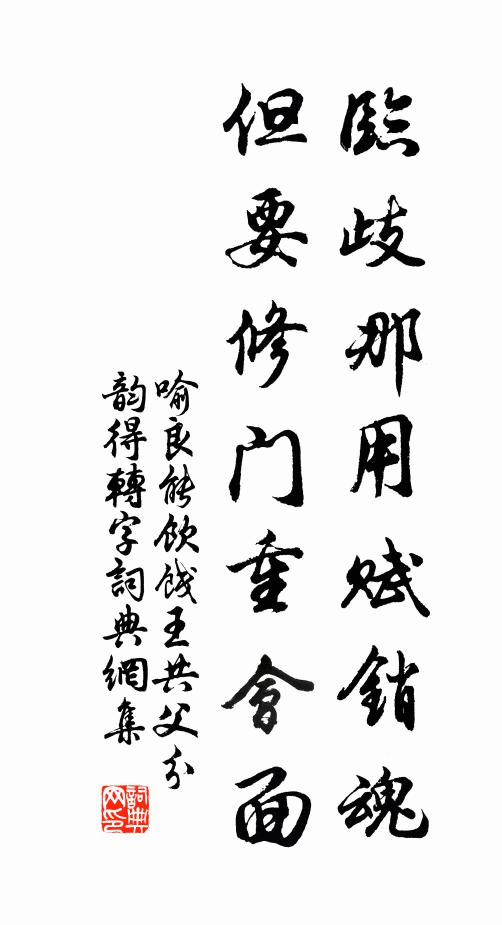 臨歧那用賦銷魂
但要修門重會面
喻良能飲餞王共父分
韵得轉字詞典網集
詞典
网印